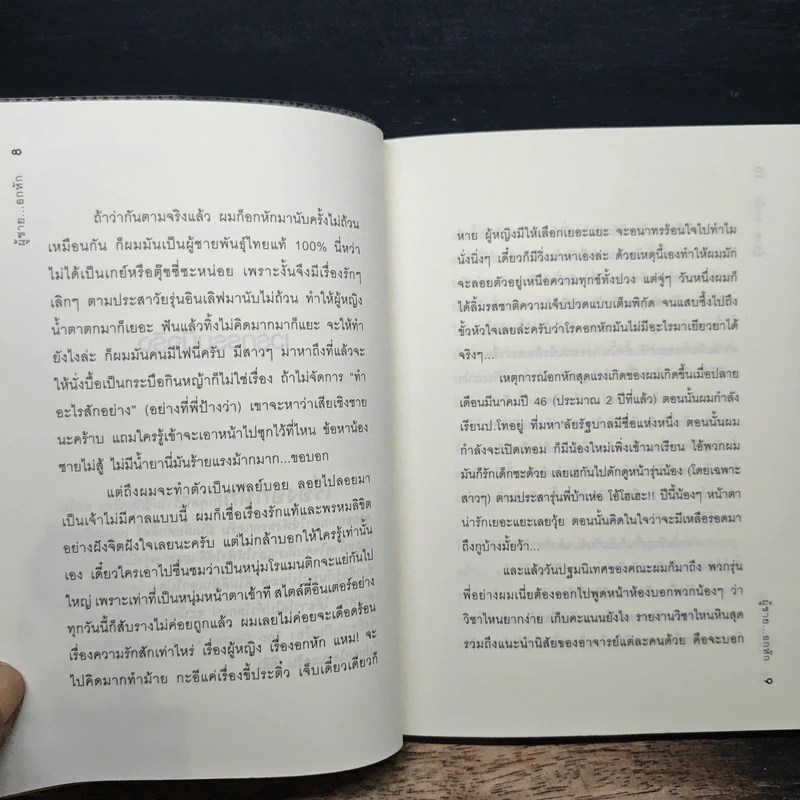 8
ผู้ชาย...อกหัก
ถ้าว่ากันตามจริงแล้ว ผมก็อกหักมานับครั้งไม่ถ้วน
เหมือนกัน ก็ผมมันเป็นผู้ชายพันธุ์ไทยแท้ 100% นี่หว่า
ไม่ได้เป็นเกย์หรือตุ๊ซซี่ซะหน่อย เพราะงั้นจึงมีเรื่องรักๆ
เลิกๆ ตามประสาวัยรุ่นอินเลิฟมานับไม่ถ้วน ทำให้ผู้หญิง
น้ำตาตกมาก็เยอะ ฟันแล้วทิ้งไม่คิดมากมาก็แยะ จะให้ทำ
ยังไงล่ะ ก็ผมมันคนมีไฟนี่ครับ มีสาวๆ มาหาถึงที่แล้วจะ
ให้นั่งบื้อเป็นกระบือกินหญ้าก็ไม่ใช่เรื่อง ถ้าไม่จัดการ "ทำ
อะไรสักอย่าง" (อย่างที่พี่ป้างว่า) เขาจะหาว่าเสียเชิงชาย
นะคร้าบ แถมใครรู้เข้าจะเอาหน้าไปซุกไว้ที่ไหน ข้อหาน้อง
ชายไม่สู้ ไม่มีน้ำยานี่มันร้ายแรงม้ากมาก...ขอบอก
แต่ถึงผมจะทำตัวเป็นเพลย์บอย ลอยไปลอยมา
เป็นเจ้าไม่มีศาลแบบนี้ ผมก็เชื่อเรื่องรักแท้และพรหมลิขิต
อย่างฝังจิตฝังใจเลยนะครับ แต่ไม่กล้าบอกให้ใครรู้เท่านั้น
เอง เดี๋ยวใครเอาไปซื่นชมว่าเป็นหนุ่มโรแมนติกจะแย่กันไป
ใหญ่ เพราะเท่าที่เป็นหนุ่มหน้าตาเข้าที สไตล์ตี๋อินเตอร์อย่าง
ทุกวันนี้ก็สับรางไม่ค่อยถูกแล้ว ผมเลยไม่ค่อยจะเดือดร้อน
เรื่องความรักสักเท่าไหร่ เรื่องผู้หญิง เรื่องอกหัก แหม! จะ
ไปคิดมากทำม้าย กะอีแค่เรื่องขี้ประติ๋ว เจ็บเดี๋ยวเดียวก็
หาย ผู้หญิงมีให้เลือกเยอะแยะ จะอนาทรร้อนใจไปทำไม
นั่งนิ่งๆ เดี๋ยวก็มีวิ่งมาหาเองล่ะ ด้วยเหตุนี้เองทำให้ผมมัก
จะลอยตัวอยู่เหนือความทุกข์ทั้งปวง แต่จู่ๆ วันหนึ่งผมก็
ได้ลิ้มรสชาติความเจ็บปวดแบบเต็มพิกัด จนแสบซึ้งไปถึง
ขั้วหัวใจเลยล่ะครับว่าโรคอกหักมันไม่มีอะไรมาเยียวยาได้
จริงๆ...
เหตุการณ์อกหักสุดแรงเกิดของผมเกิดขึ้นเมื่อปลาย
เดือนมีนาคมปี 46 (ประมาณ 2 ปีที่แล้ว) ตอนนั้นผมกำลัง
เรียนป.โทอยู่ ที่มหา'ลัยรัฐบาลมีชื่อแห่งหนึ่ง ตอนนั้นผม
กำลังจะเปิดเทอม ก็มีน้องใหม่เพิ่งเข้ามาเรียน ไอ้พวกผม
มันก็รักเด็กซะด้วย เลยเฮกันไปดักดูหน้ารุ่นน้อง (โดยเฉพาะ
สาวๆ) ตามประสารุ่นพี่บ้าเห่อ โอ้โฮเฮะ!! ปีนี้น้องๆ หน้าตา
น่ารักเยอะแยะเลยวุ้ย ตอนนั้นคิดในใจว่าจะมีเหลือรอดมา
ถึงกูบ้างมั้ยว้า...
และแล้ววันปฐมนิเทศของคณะผมก็มาถึง พวกรุ่น
พี่อย่างผมเนี่ยต้องออกไปพูดหน้าห้องบอกพวกน้องๆ ว่า
วิชาไหนยากง่าย เก็บคะแนนยังไง รายงานวิชาไหนหินสุด
รวมถึงแนะนำนิสัยของอาจารย์แต่ละคนด้วย คือจะบอก
ผู้ชาย...อกหัก
9